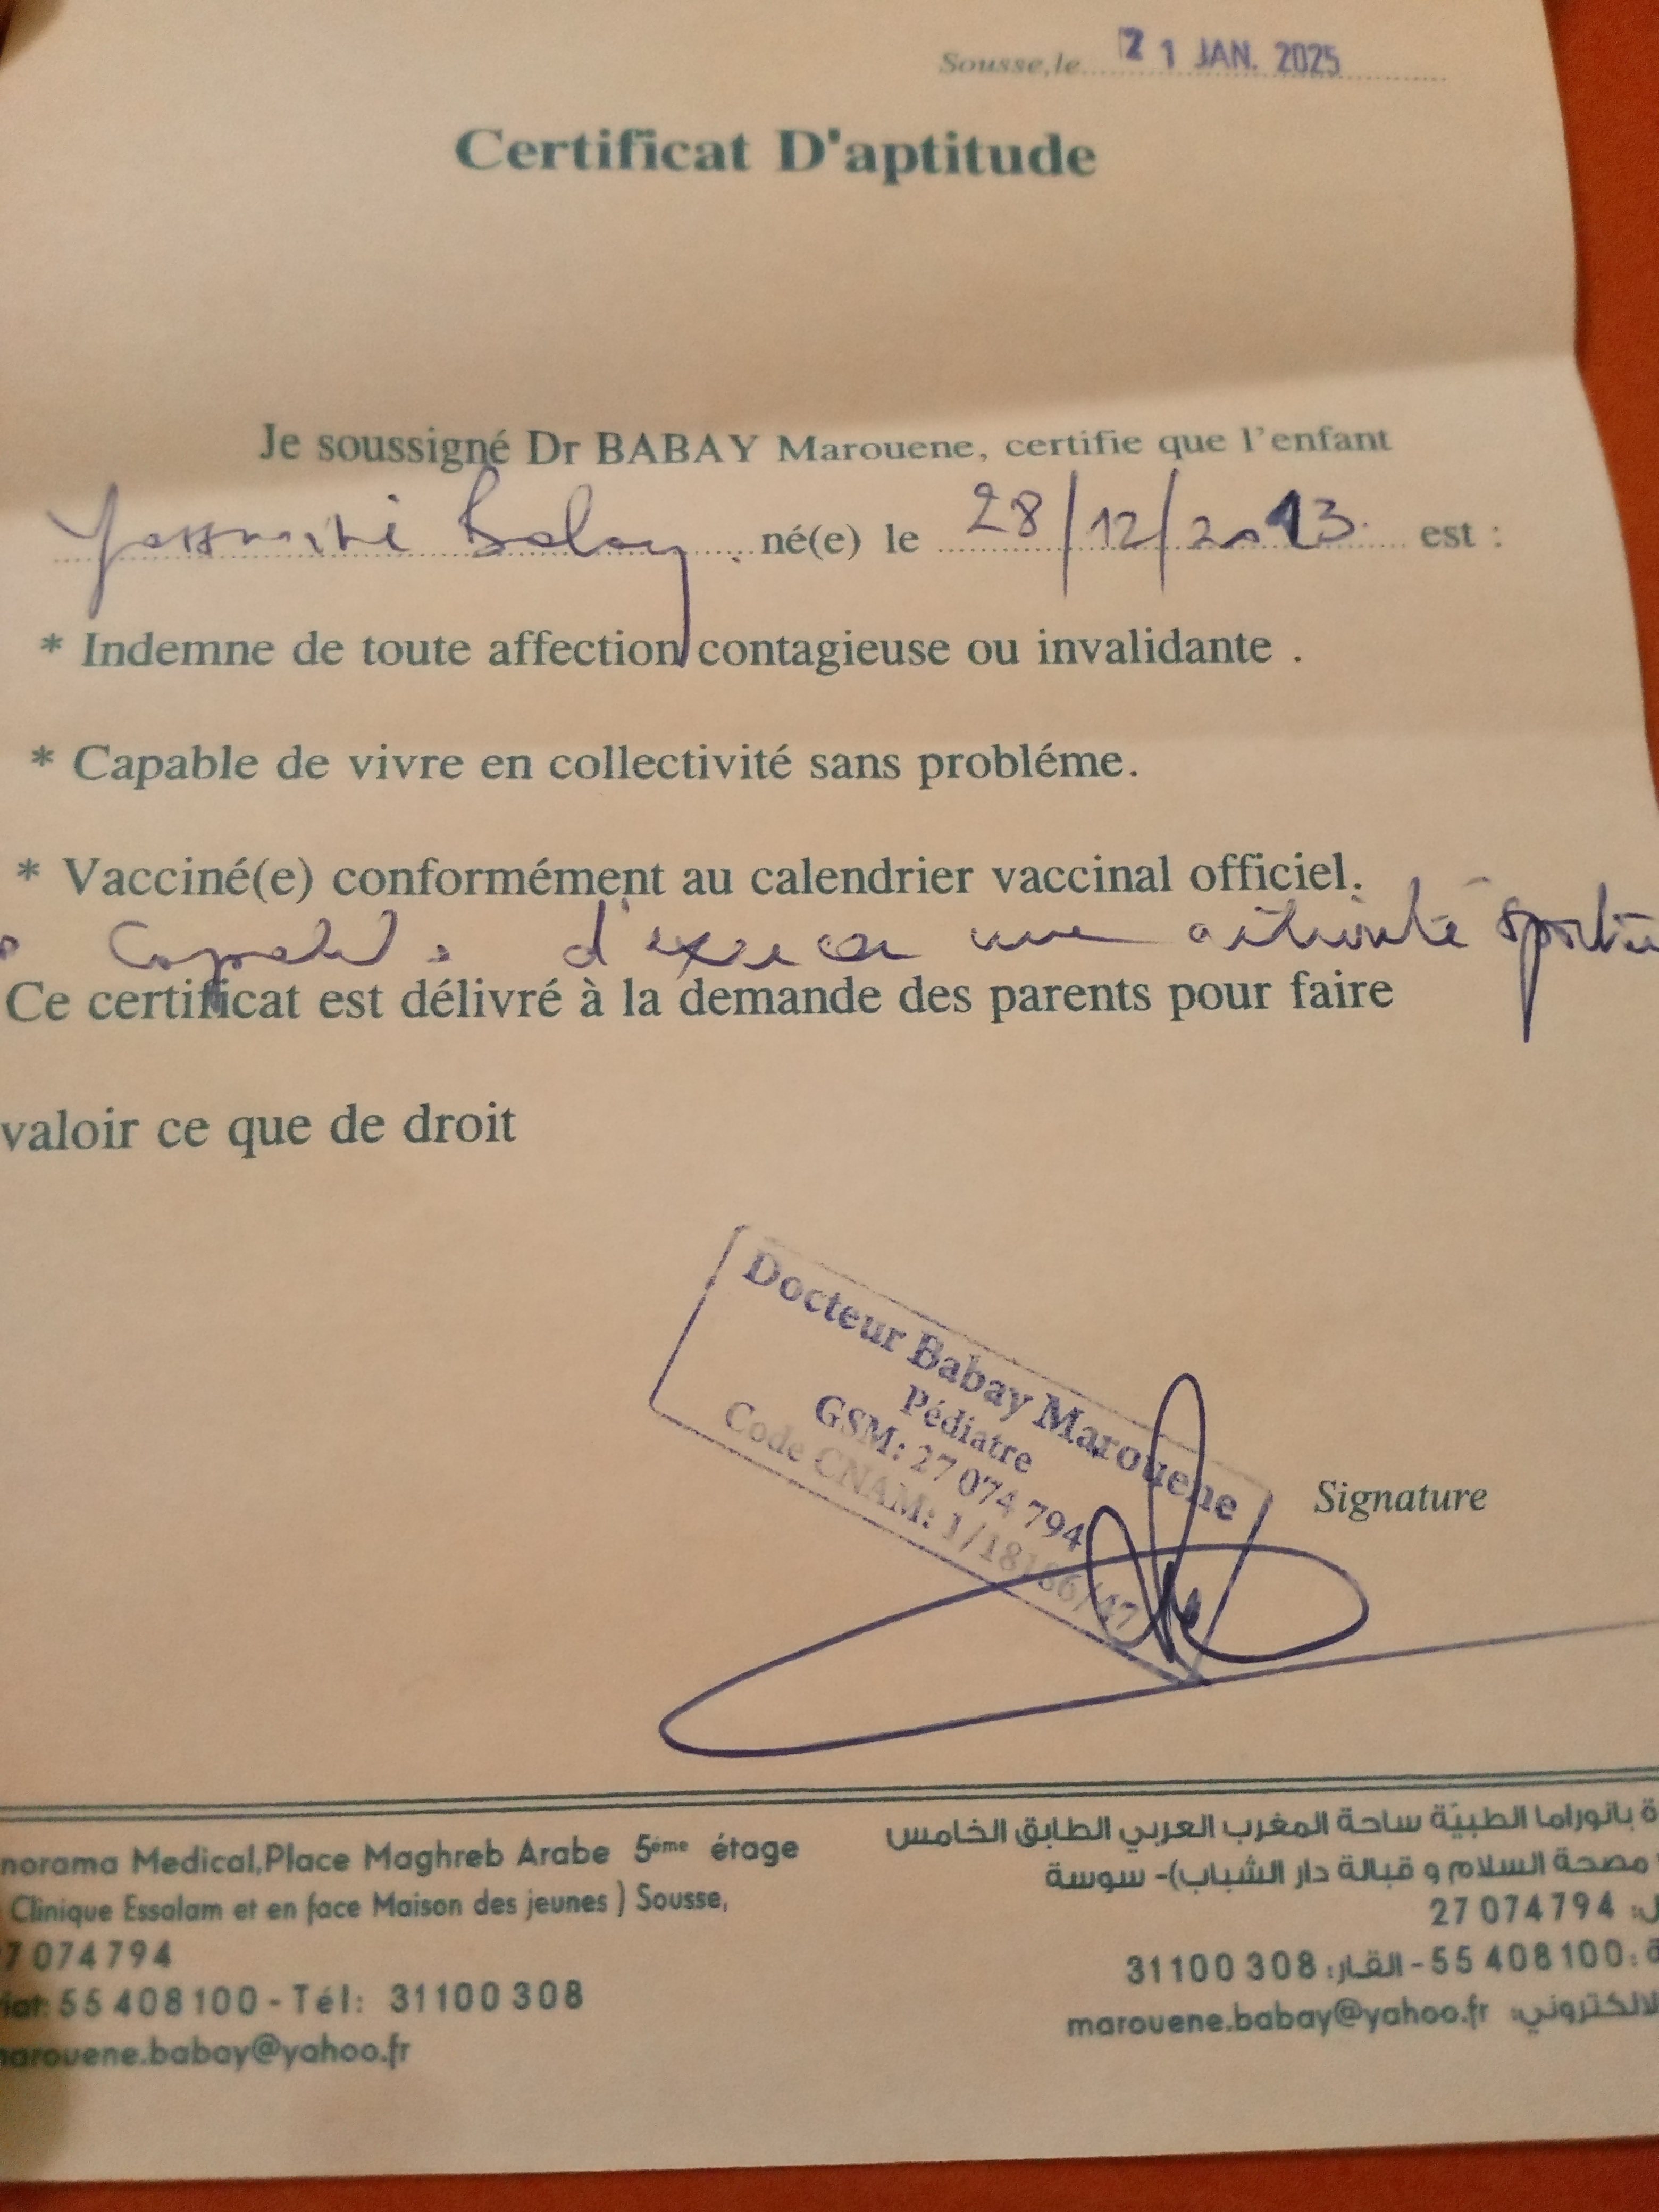 Sousse,le 21 JAN. 2025
Certificat D'aptitude
Je soussigné Dr BABAY Marouene, certifie que l'enfant
Babay né(e) le 28/12/2013 est :
* Indemne de toute affection contagieuse ou invalidante .
* Capable de vivre en collectivité sans probléme.
* Vacciné(e) conformément au calendrier vaccinal officiel.
Capable d'exercer une activité sportive
Ce certificat est délivré à la demande des parents pour faire
valoir ce que de droit
Docteur Babay Marouene
Pédiatre
GSM: 27 074 794
Code CNAM: 1/18186/47
Signature
norama Medical,Place Maghreb Arabe 5ème étage
Clinique Essalam et en face Maison des jeunes ) Sousse,
7 074 794
iat: 55 408 100 - Tél: 31 100 308
marouene.babay@yahoo.fr
ة بانوراما الطبيّة ساحة المغرب العربي الطابق الخامس
مصحة السلام و قبالة دار الشباب)- سوسة
ل: 27 074 794
ة: 55 408 100 - القار: 31 100 308
لالكتروني: marouene.babay@yahoo.fr